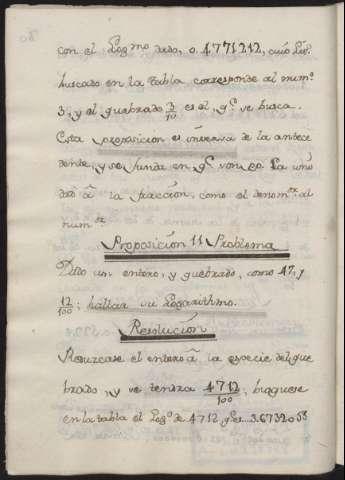 con el Log.mo dado, o. 4771212, cuio Log.
buscado en la tabla corresponde al num.o
3; y el quebrado 3/10 es el q.e se busca.
Esta proposicion es inversa de la antece
dente, y se funda en q.e son
dad â la fraccion, como el denom.or al
num.or
Proposicion 11 Problema
Dado un entero, y quebrado, como 47, y
12/100; hallar su Logarithmo.
Resolucion
Reduzcase el entero â la especie del que
brado, y se tendra 4712/100; busquese
en la tabla el Log.o de 4712 q.e es 3.6732058